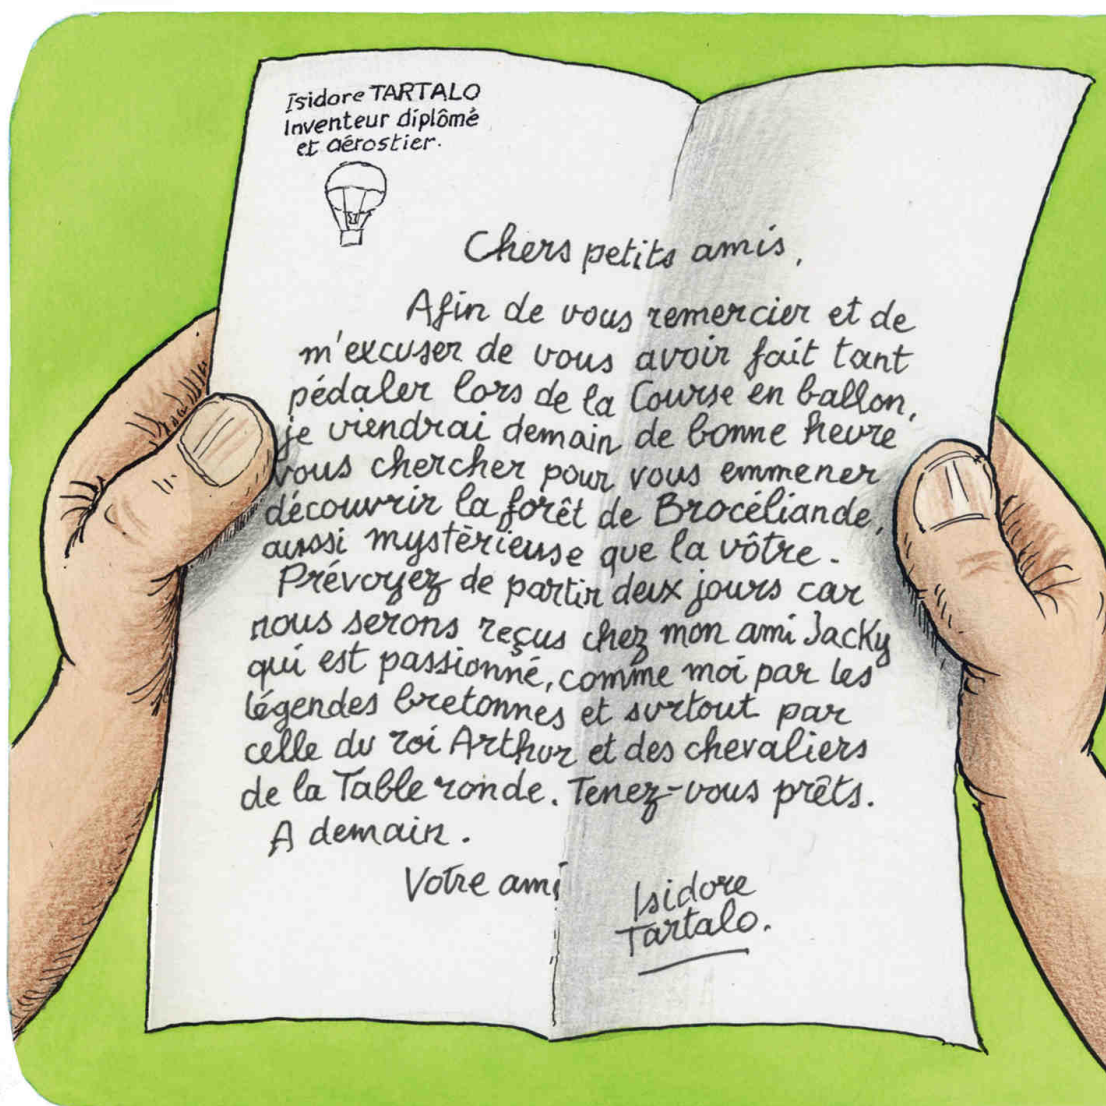 Isidore TARTALO
Inventeur diplômé
et aérostier.
Chers petits amis,
Afin de vous remercier et de
m'excuser de vous avoir fait tant
pédaler lors de la Course en ballon,
je viendrai demain de bonne heure
vous chercher pour vous emmener
découvrir la forêt de Brocéliande,
aussi mystèrieuse que la vôtre.
Prévoyez de partir deux jours car
nous serons reçus chez mon ami Jacky
qui est passionné, comme moi par les
légendes bretonnes et surtout par
celle du roi Arthur et des chevaliers
de la Table ronde. Tenez-vous prêts.
A demain.
Votre ami
Isidore
Tartalo.